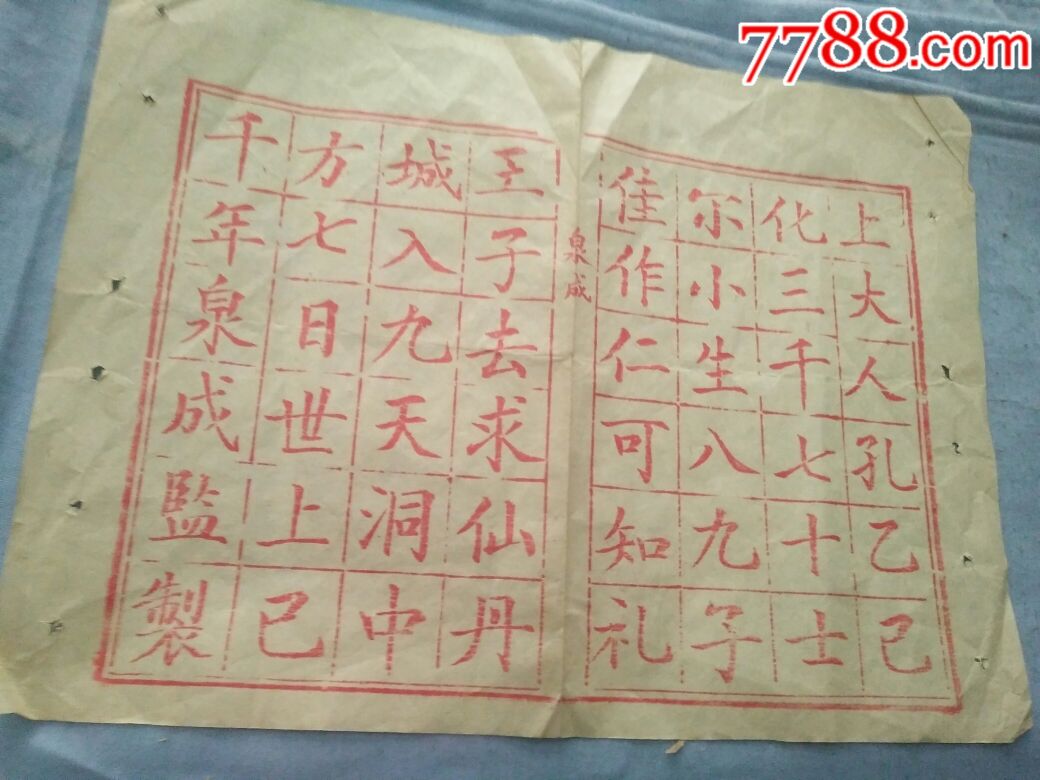 7788.com
上大人孔乙己
化三千七十士
尔小生八九子
佳作仁可知礼
泉成
王子去求仙丹
城入九天洞中
方七日世上已
千年泉成監製